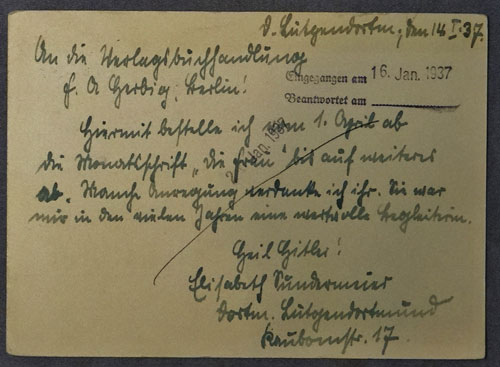 D. Lütgendortm., den 14. I. 37.
An die Verlagsbuchhandlung
F. A. Herbig, Berlin!
Eingegangen am 16. Jan. 1937
Beantwortet am
Hiermit bestelle ich vom 1. April ab
die Monatsschrift „Die Frau“ bis auf weiteres
ab. Manche Anregung verdanke ich ihr. Sie war
mir in den vielen Jahren eine wertvolle Begleiterin.
Heil Hitler!
Elisabeth Sundermeier
Dortm. Lütgendortmund
17.